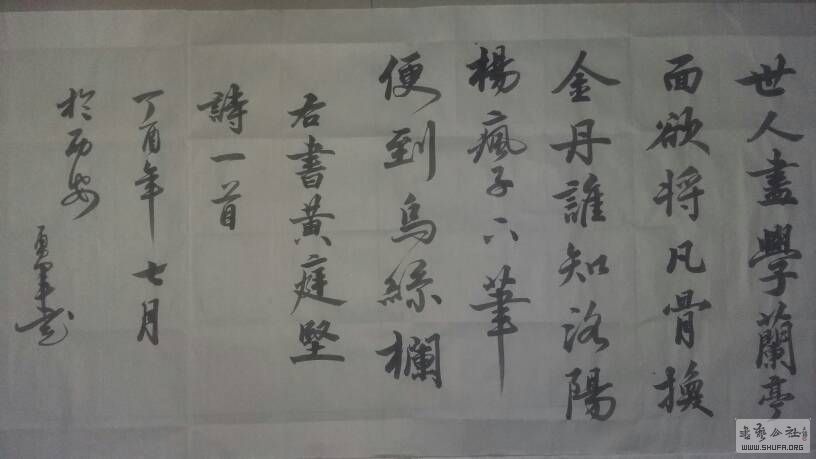 世人盡學蘭亭
面欲將凡骨換
金丹誰知洛陽
楊瘋子下筆
便到烏絲欄
右書黃庭堅
詩一首
丁酉年七月
於西安
書藝公社
WWW.SHUFA.ORG